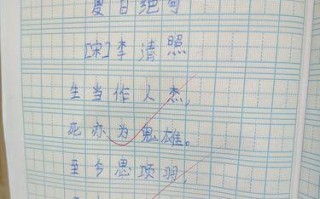 夏日绝句
[宋]李清照
生当作人杰,
死亦为鬼雄。
至今思项羽,